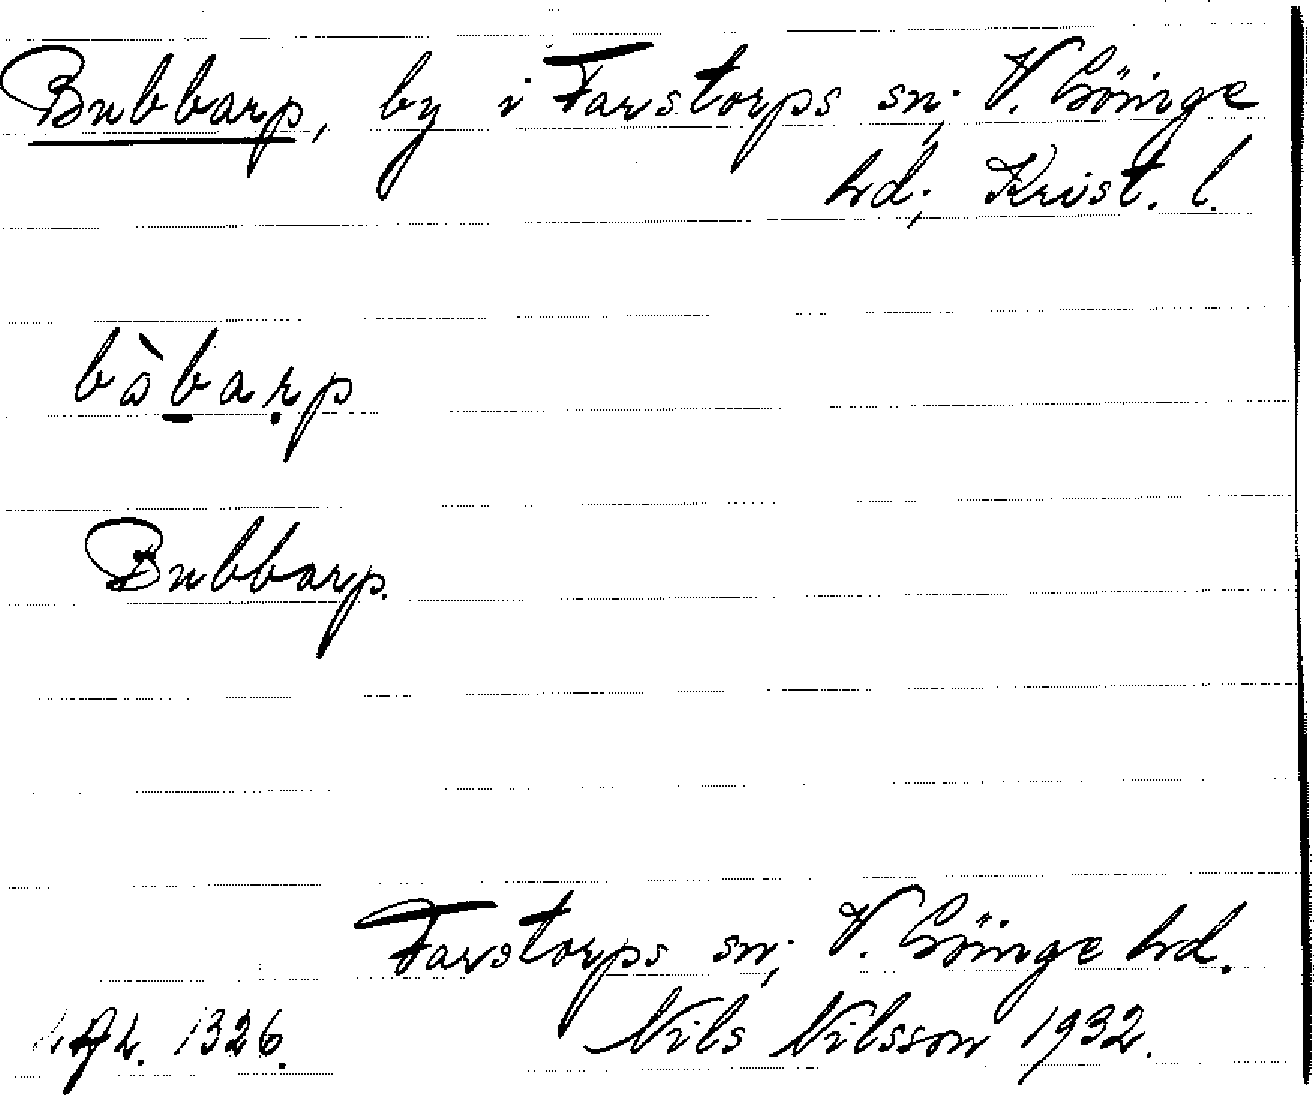 Bubbarp, by i Farstorps sn; V. Göinge
hd; Krist. l.
bàbarp
Bubbarp.
Farstorps sn; V. Göinge hd.
1326. Nils Nilsson 1932.